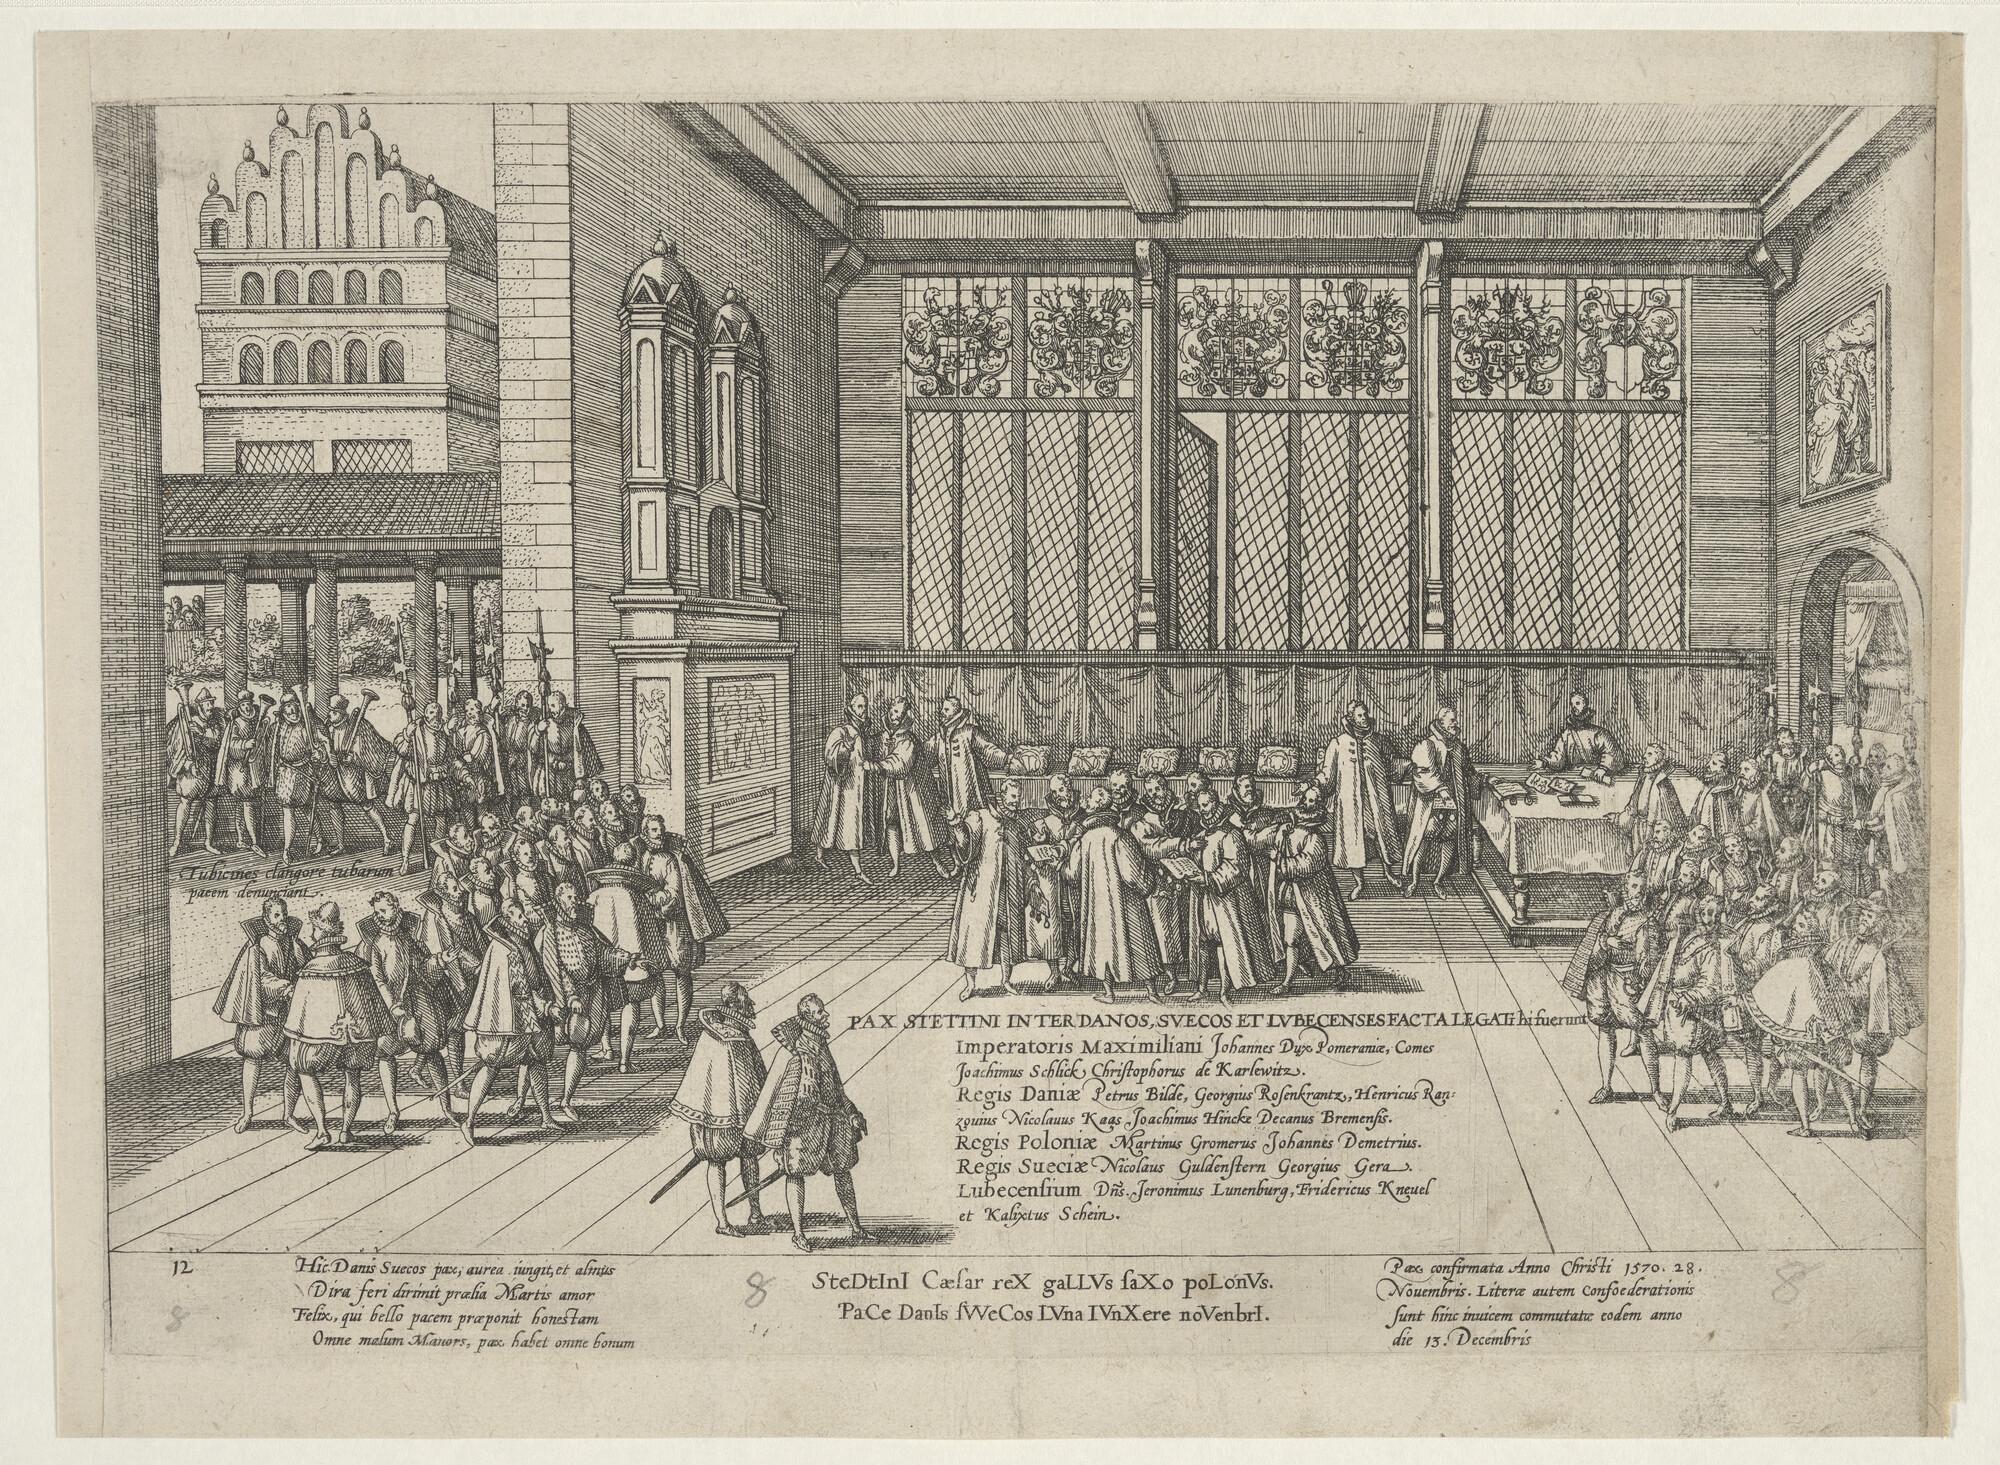 Tubicines clangore tubarum
pacem denunciant.
PAX STETTINI INTER DANOS, SVECOS ET LVBECENSES FACTA LEGATI hi fuerunt
Imperatoris Maximiliani Johannes Dux Pomeraniæ, Comes
Joachimus Schlick Christophorus de Karlewitz.
Regis Daniæ Petrus Bilde, Georgius Rosenkrantz, Henricus Ran:
zouius Nicolauus Kaas Joachimus Hincke Decanus Bremensis.
Regis Poloniæ Martinus Gromerus Johannes Demetrius.
Regis Sueciæ Nicolaus Guldenstern Georgius Gera.
Lubecensium Dñs. Jeronimus Lunenburg, Fridericus Kneuel
et Kalixtus Schein.
12
Hic Danis Suecos pax, aurea iungit, et almus
Dira feri dirimit prælia Martis amor
Felix, qui bello pacem præponit honestam
Omne malum Mauors, pax habet omne bonum
8
8
SteDtInI Cæsar reX gaLLVs saXo poLonVs.
PaCe DanIs sVVeCos LVna IVnXere noVenbrI.
Pax confirmata Anno Christi 1570. 28.
Nouembris. Literæ autem Confoederationis
sunt hinc inuicem commutatæ eodem anno
die 13. Decembris
8